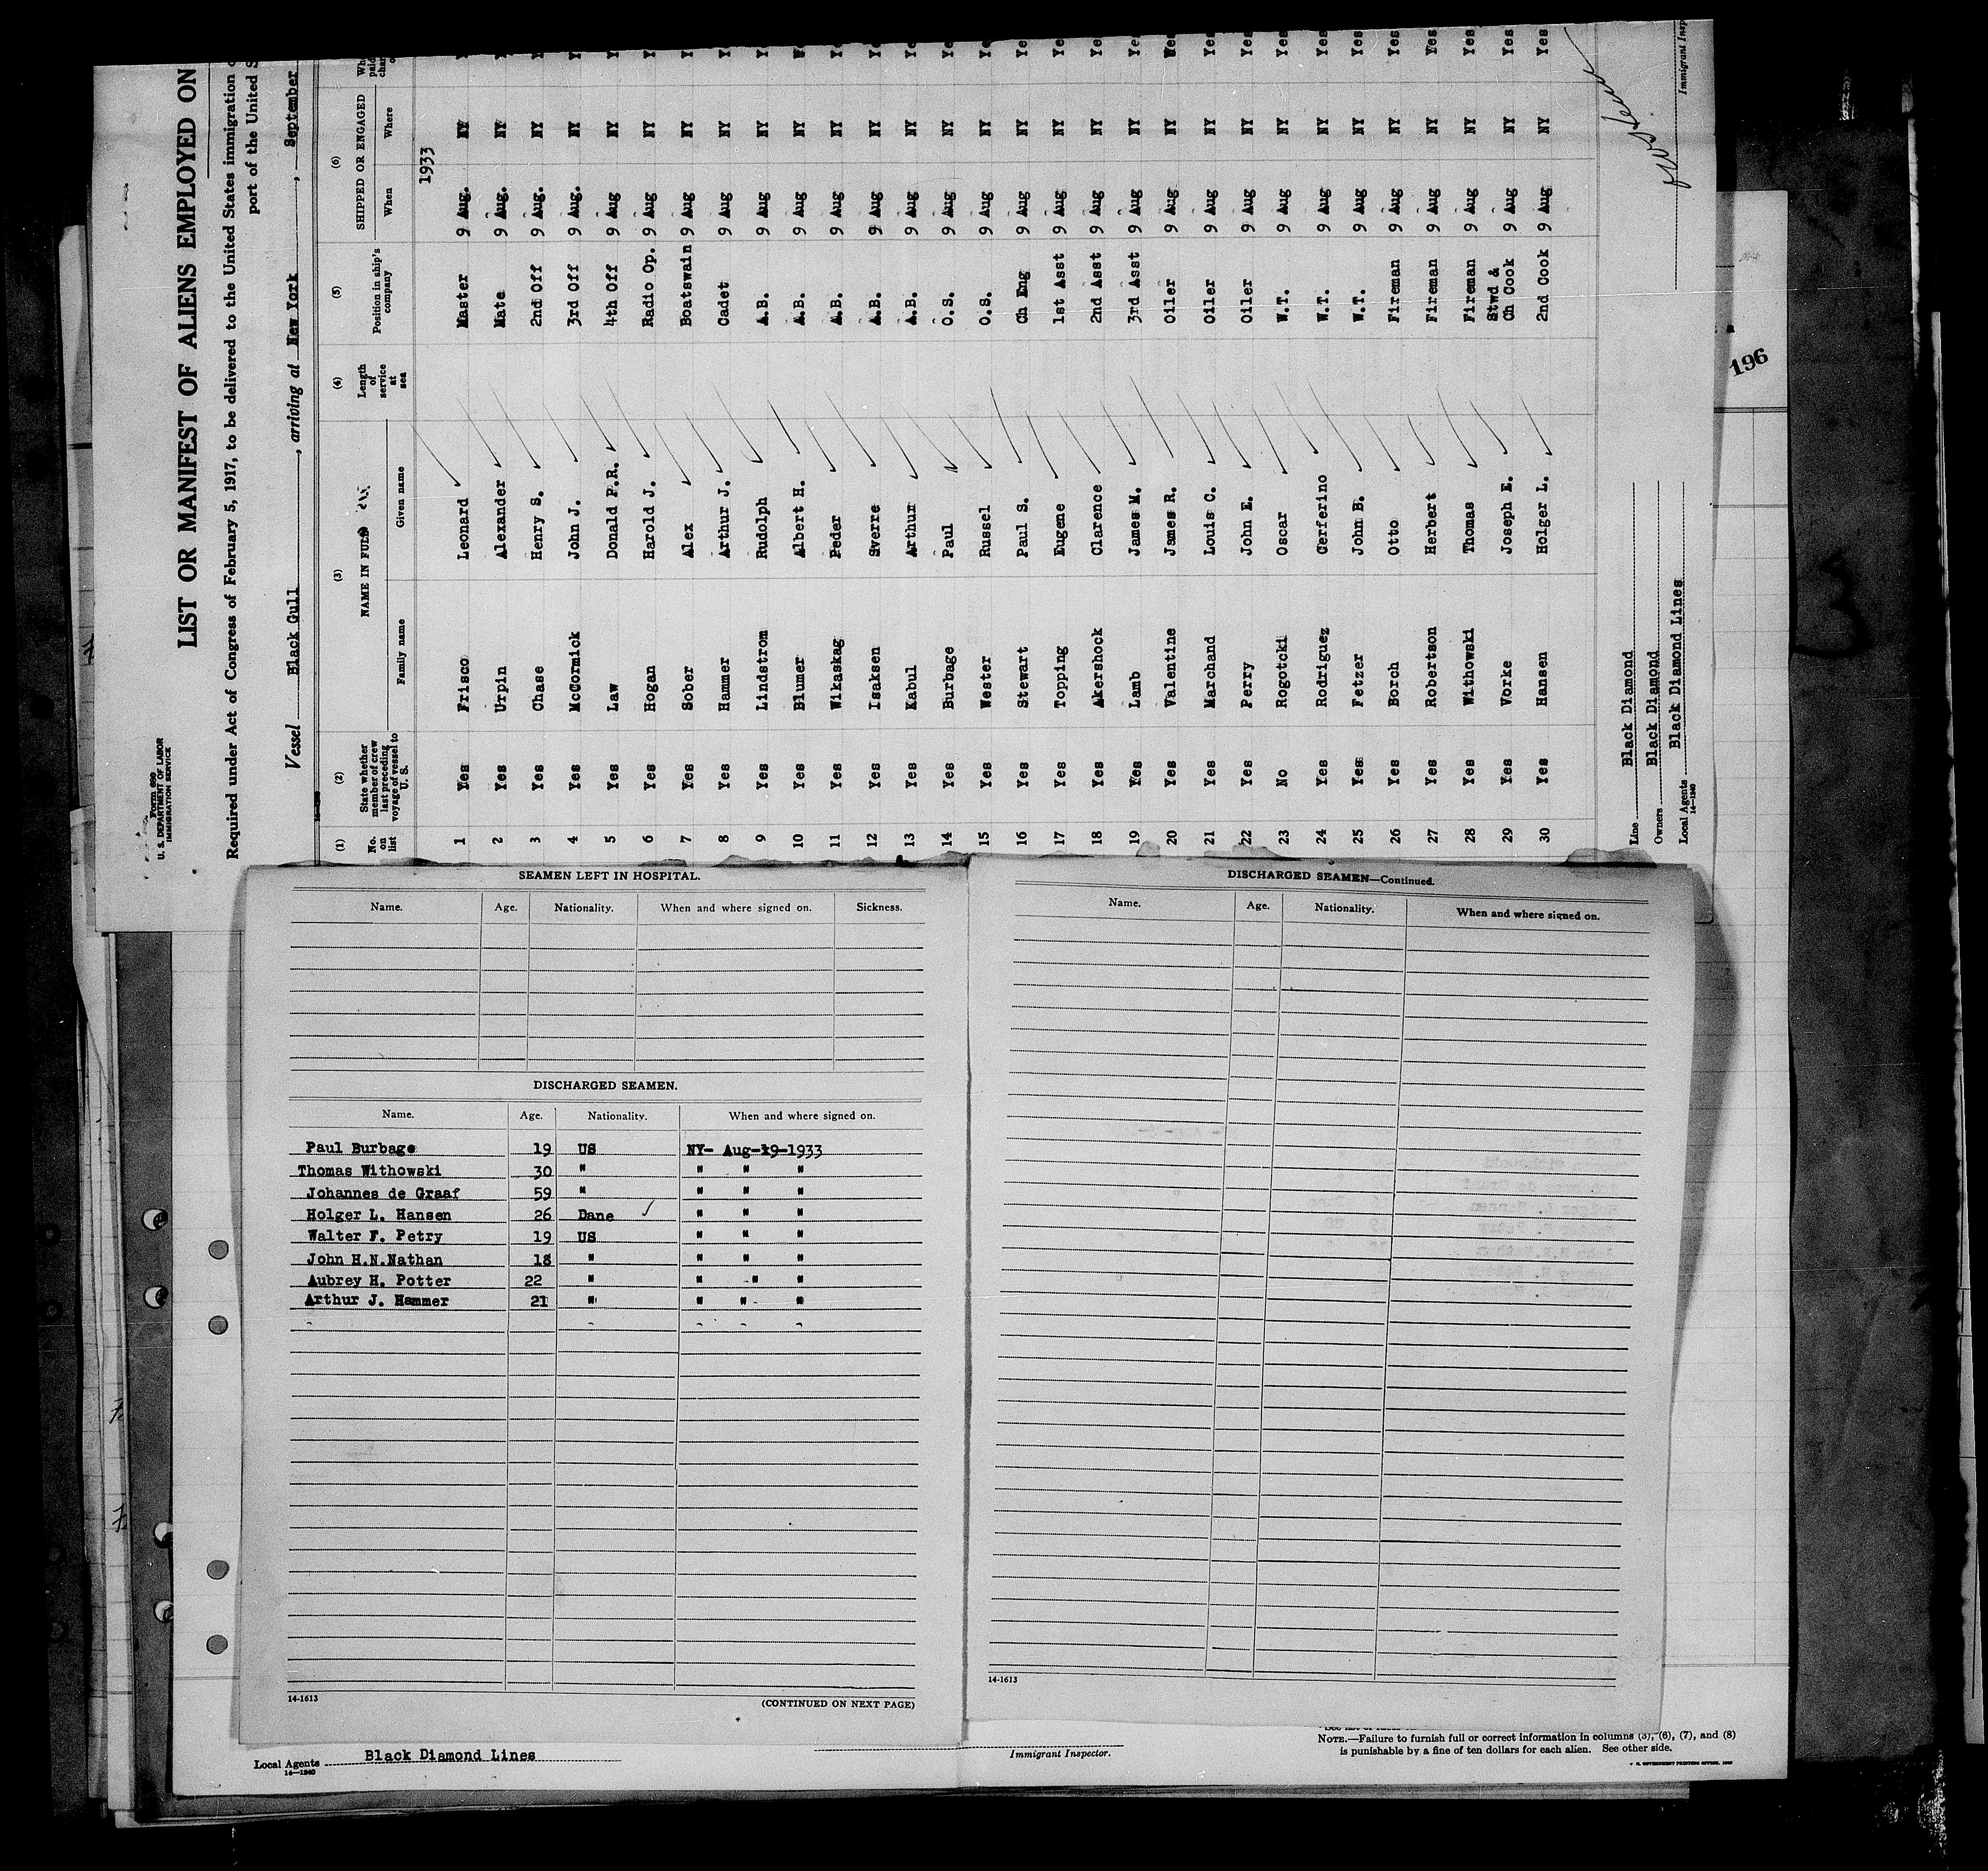 Form 680
U. S. DEPARTMENT OF LABOR
IMMIGRATION SERVICE
LIST OR MANIFEST OF ALIENS EMPLOYED ON
Required under Act of Congress of February 5, 1917, to be delivered to the United States immigration
port of the United S
Vessel Black Gull, arriving at New York, September
(1) (2) (3) (4) (5) (6)
No. on list State whether member of crew last preceding voyage of vessel to U. S. NAME IN FULL Length of service at sea Position in ship's company SHIPPED OR ENGAGED
Family name Given name When Where
1933
1 Yes Frisco Leonard Master 9 Aug. NY
2 Yes Urpin Alexander Mate 9 Aug. NY
3 Yes Chase Henry S. 2nd Off 9 Aug. NY
4 Yes McCormick John J. 3rd Off 9 Aug. NY
5 Yes Law Donald P.R. 4th Off 9 Aug NY
6 Yes Hogan Harold J. Radio Op. 9 Aug NY
7 Yes Sober Alex Boatswain 9 Aug NY
8 Yes Hammer Arthur J. Cadet 9 Aug NY
9 Yes Lindstrom Rudolph A.B. 9 Aug NY
10 Yes Blumer Albert H. A.B. 9 Aug NY
11 Yes Wikaskag Peder A.B. 9 Aug NY
12 Yes Isaksen Sverre A.B. 9 Aug NY
13 Yes Kabul Arthur A.B. 9 Aug NY
14 Yes Burbage Paul O.S. 9 Aug NY
15 Yes Wester Russel O.S. 9 Aug NY
16 Yes Stewart Paul S. Ch Eng 9 Aug NY Ye
17 Yes Topping Eugene 1st Asst 9 Aug NY Ye
18 Yes Akershock Clarence 2nd Asst 9 Aug NY Ye
19 Yes Lamb James M. 3rd Asst 9 Aug NY Ye
20 Yes Valentine James R. Oiler 9 Aug NY Yes
21 Yes Marchand Louis C. Oiler 9 Aug NY Yes
22 Yes Perry John E. Oiler 9 Aug NY Yes
23 No Rogotcki Oscar W.T. 9 Aug NY Yes
24 Yes Rodriguez Cerferino W.T. 9 Aug NY Yes
25 Yes Fetzer John B. W.T. 9 Aug NY Yes
26 Yes Borch Otto Fireman 9 Aug NY Yes
27 Yes Robertson Herbert Fireman 9 Aug NY Yes
28 Yes Withowski Thomas Fireman 9 Aug NY Yes
29 Yes Vorke Joseph E. Stwd & Ch Cook 9 Aug NY Yes
30 Yes Hansen Holger L. 2nd Cook 9 Aug NY Yes
Line Black Diamond
Owners Black Diamond
Local Agents Black Diamond Lines
14-1240
Immigrant Insp
196
SEAMEN LEFT IN HOSPITAL.
Name. Age. Nationality. When and where signed on. Sickness.
DISCHARGED SEAMEN.
Name. Age. Nationality. When and where signed on.
Paul Burbage 19 US NY- Aug-19-1933
Thomas Withowski 30 " " " "
Johannes de Graaf 59 " " " "
Holger L. Hansen 26 Dane " " "
Walter F. Petry 19 US " " "
John H.N.Nathan 18 " " " "
Aubrey H. Potter 22 " " " "
Arthur J. Hammer 21 " " " "
14-1613
(CONTINUED ON NEXT PAGE)
DISCHARGED SEAMEN—Continued.
Name. Age. Nationality. When and where signed on.
14-1613
Local Agents Black Diamond Lines
14-1240
Immigrant Inspector.
NOTE.—Failure to furnish full or correct information in columns (3), (6), (7), and (8)
is punishable by a fine of ten dollars for each alien. See other side.